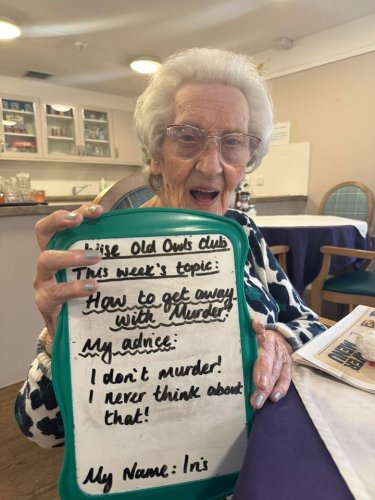 Wise Old Owls Club
This week's topic:
How to get away
with Murder?
My advice:
I don't murder!
I never think about
that!
My Name: Iris